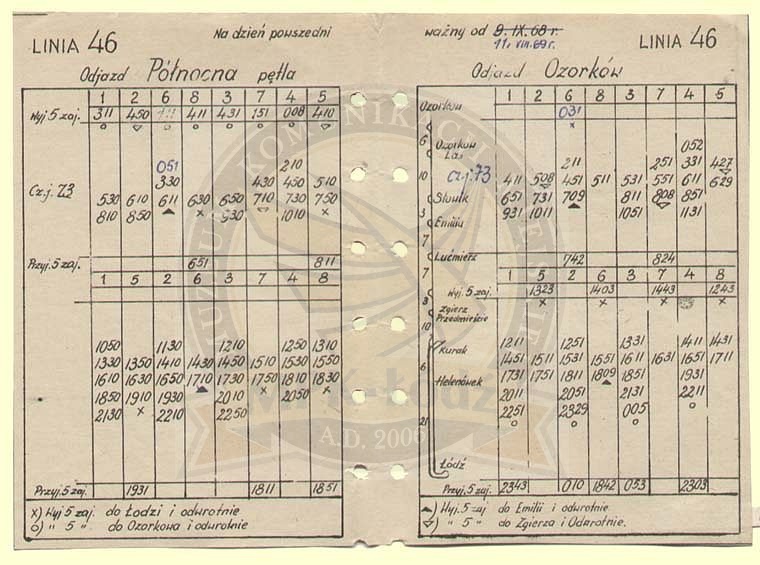 LINIA 46
Na dzień powszedni
Odjazd Północna pętla
1 2 6 8 3 7 4 5
Wyj. 5 zaj. 311 450 411 431 151 008 410
o ▽ o o o o ▽
051 210
330 430 450 510
Cz.j. 73
530 610 611 630 650 710 730 750
810 850 ▲ x 930 ▽ 1010 x
Przyj. 5 zaj. 651 811
1 5 2 6 3 7 4 8
1050 1130 1210 1250 1310
1330 1350 1410 1430 1450 1510 1530 1550
1610 1630 1650 1710 1730 1750 1810 1830
1850 1910 1930 ▲ 2010 x 2050 x
2130 x 2210 2250
Przyj. 5 zaj. 1931 1811 1851
x) Wyj 5 zaj. do Łodzi i odwrotnie
o) " 5 " do Ozorkowa i odwrotnie
ważny od 9. IX. 68 r.
11. VIII. 69 r.
LINIA 46
Odjazd Ozorków
1 2 6 8 3 7 4 5
Ozorków 031
x
6 Ozorków Las 052
211 251 331 427
10 cz.j. 73 411 508 451 511 531 551 611 629
Słowik 651 731 709 811 808 851
3 931 1011 ▲ 1051 ▽ 1131
Emilia
7
Lućmierz 742 824
7 1 5 2 6 3 7 4 8
Wyj. 5 zaj. 1323 1403 1443 1243
3 x x x x
Zgierz Przedmieście
10
Kurak 1211 1251 1331 1411 1431
1451 1511 1531 1551 1611 1631 1651 1711
6
Helenówek 1731 1751 1811 1809 1851 1931
2011 2051 ▲ 2131 2211
2251 2329 005 o
21 o o o
Łódź
Przyj. 5 zaj. 2343 010 1842 053 2303
▲) Wyj. 5 zaj do Emilii i odwrotnie
▽) " 5 " do Zgierza i Odwrotnie.
A.D. 2006